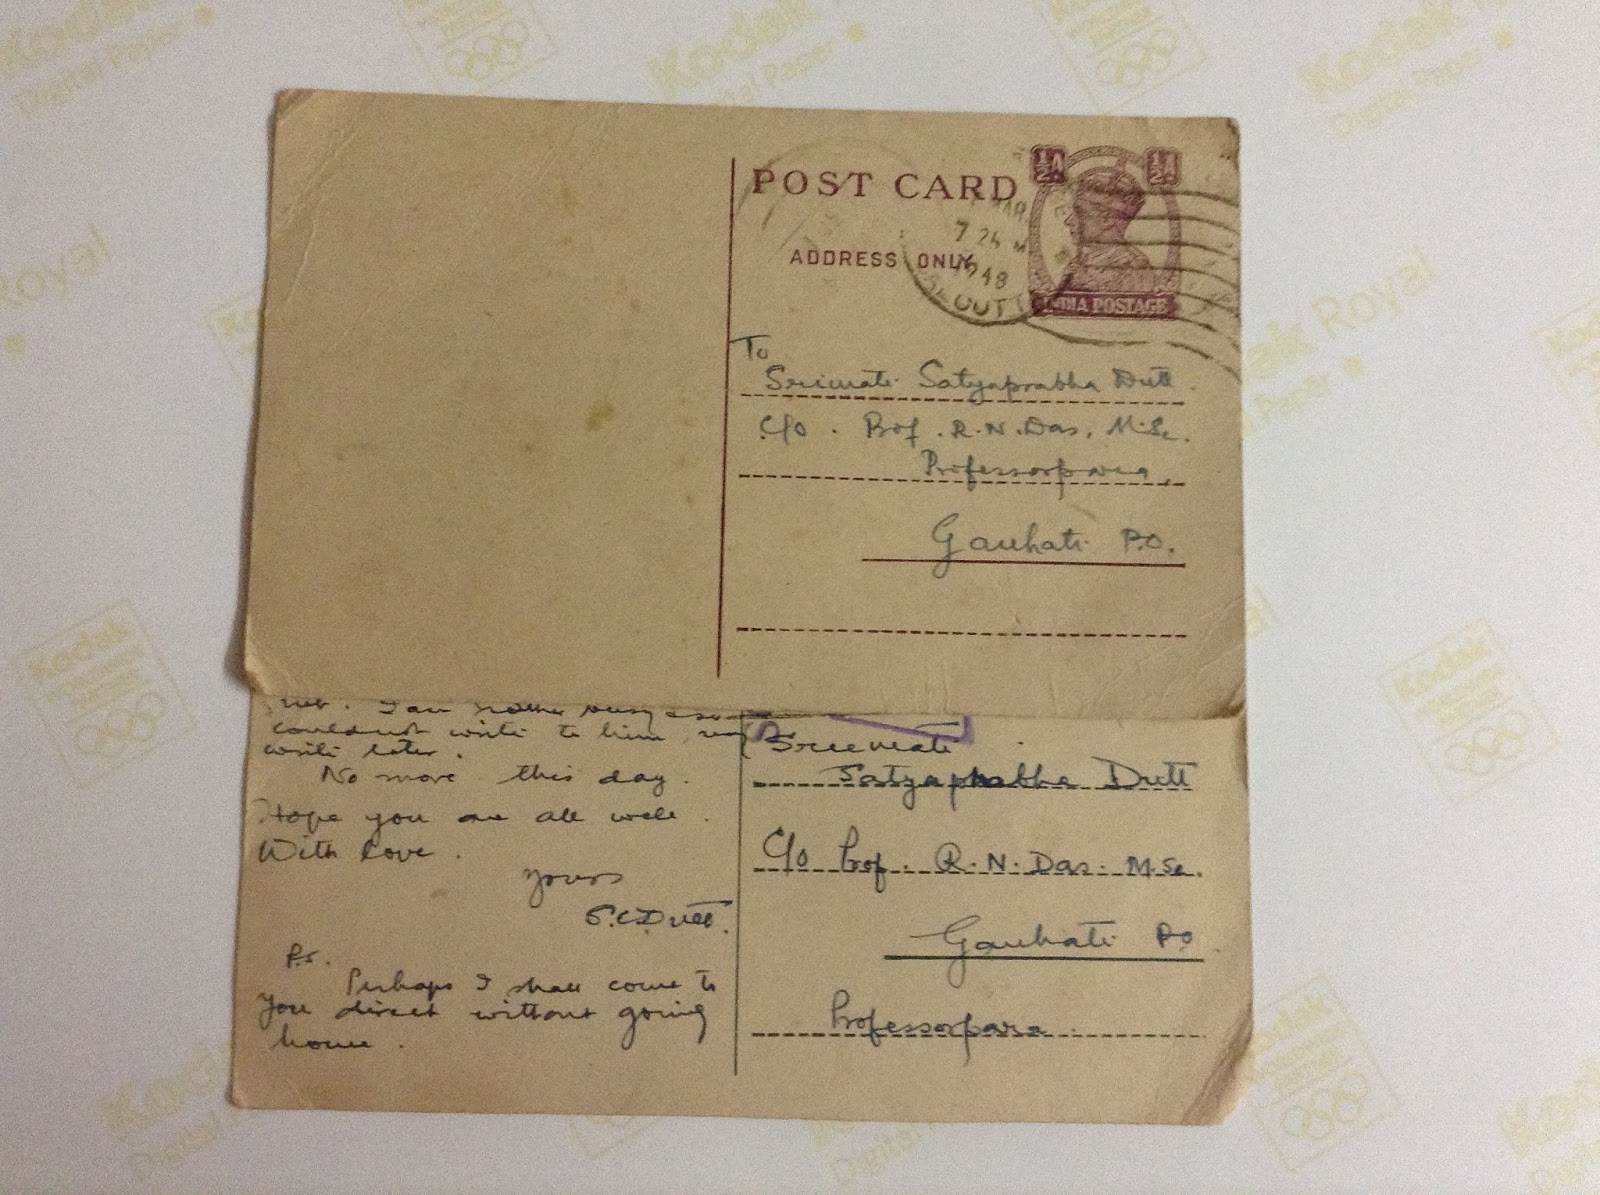 POST CARD
ADDRESS ONLY
½A ½A
INDIA POSTAGE
MAR
7 24 M
948
CUTT
To
Srimati Satyaprabha Dutt.
C/o. Prof. R.N. Das, M.Sc.
Professorpara,
Gauhati P.O.
I am rather busy & so
could not write to him, may
write later.
No more this day.
Hope you are all well.
With love.
Yours
S.C. Dutt.
P.S.
Perhaps I shall come to
you direct without going
home.
Sreemati
Satyaprabha Dutt
C/o Prof. R.N. Das. M.Sc.
Gauhati P.O.
Professorpara
Kodak Royal
Digital Paper